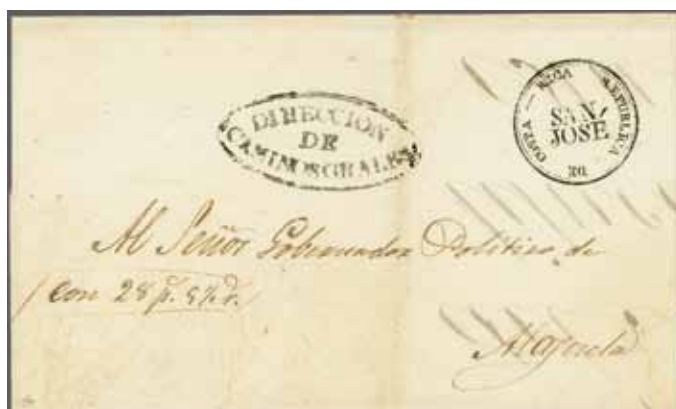 DIRECCION
DE
CAMINOS GRALES
COSTA — RICA REPUBLICA
SAN
JOSÉ
Al Señor Gobernador Politico de
con 28 p.
Alajuela